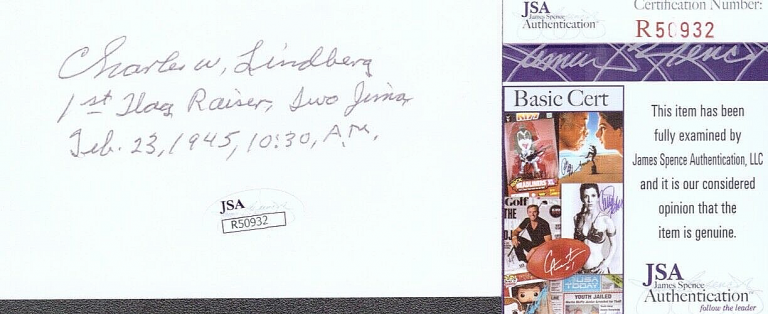 Charles W. Lindberg
1st Flag Raiser, Iwo Jima
Feb. 23, 1945, 10:30, A.M.
JSA
R50932
JSA
James Spence
Authentication
Certification Number:
R50932
James Spence
Basic Cert
Golf
THE
USA
TODAY
YOUTH JAILED
This item has been
fully examined by
James Spence Authentication, LLC
and it is our considered
opinion that the
item is genuine.
JSA
James Spence
Authentication
follow the leader